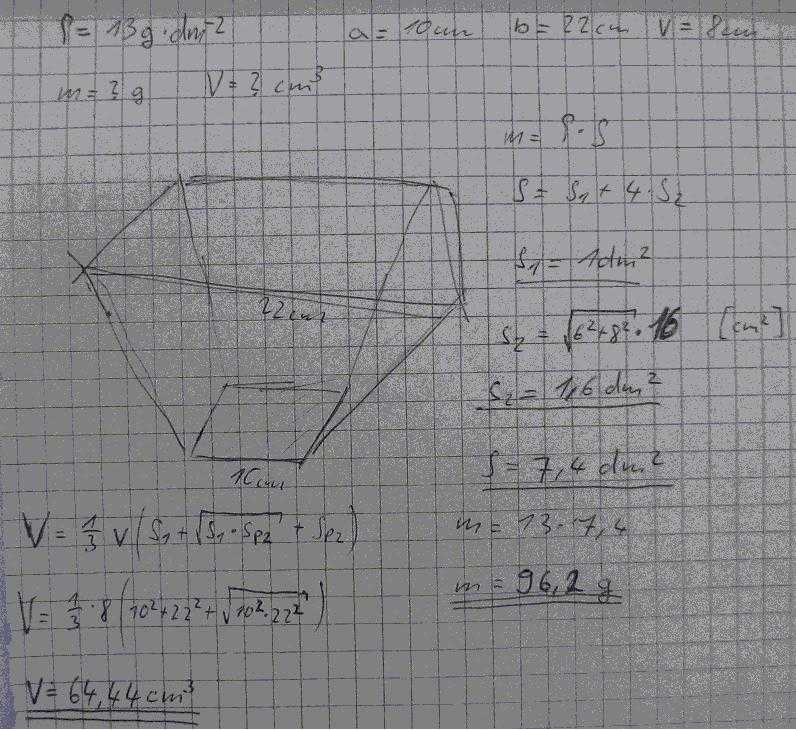 ρ = 13g·dm⁻² a = 10cm b = 22cm v = 8cm
m = ? g V = ? cm³
m = ρ·S
S = S₁ + 4·S₂
S₁ = 1dm²
S₂ = √(6²+8²)·16 [cm²]
S₂ = 1,6 dm²
S = 7,4 dm²
m = 13·7,4
m = 96,2 g
22cm
10cm
V = 1/3 v (S₁ + √(S₁·Sp₂) + Sp₂)
V = 1/3·8 (10²+22²+√(10²·22²))
V = 64,44 cm³